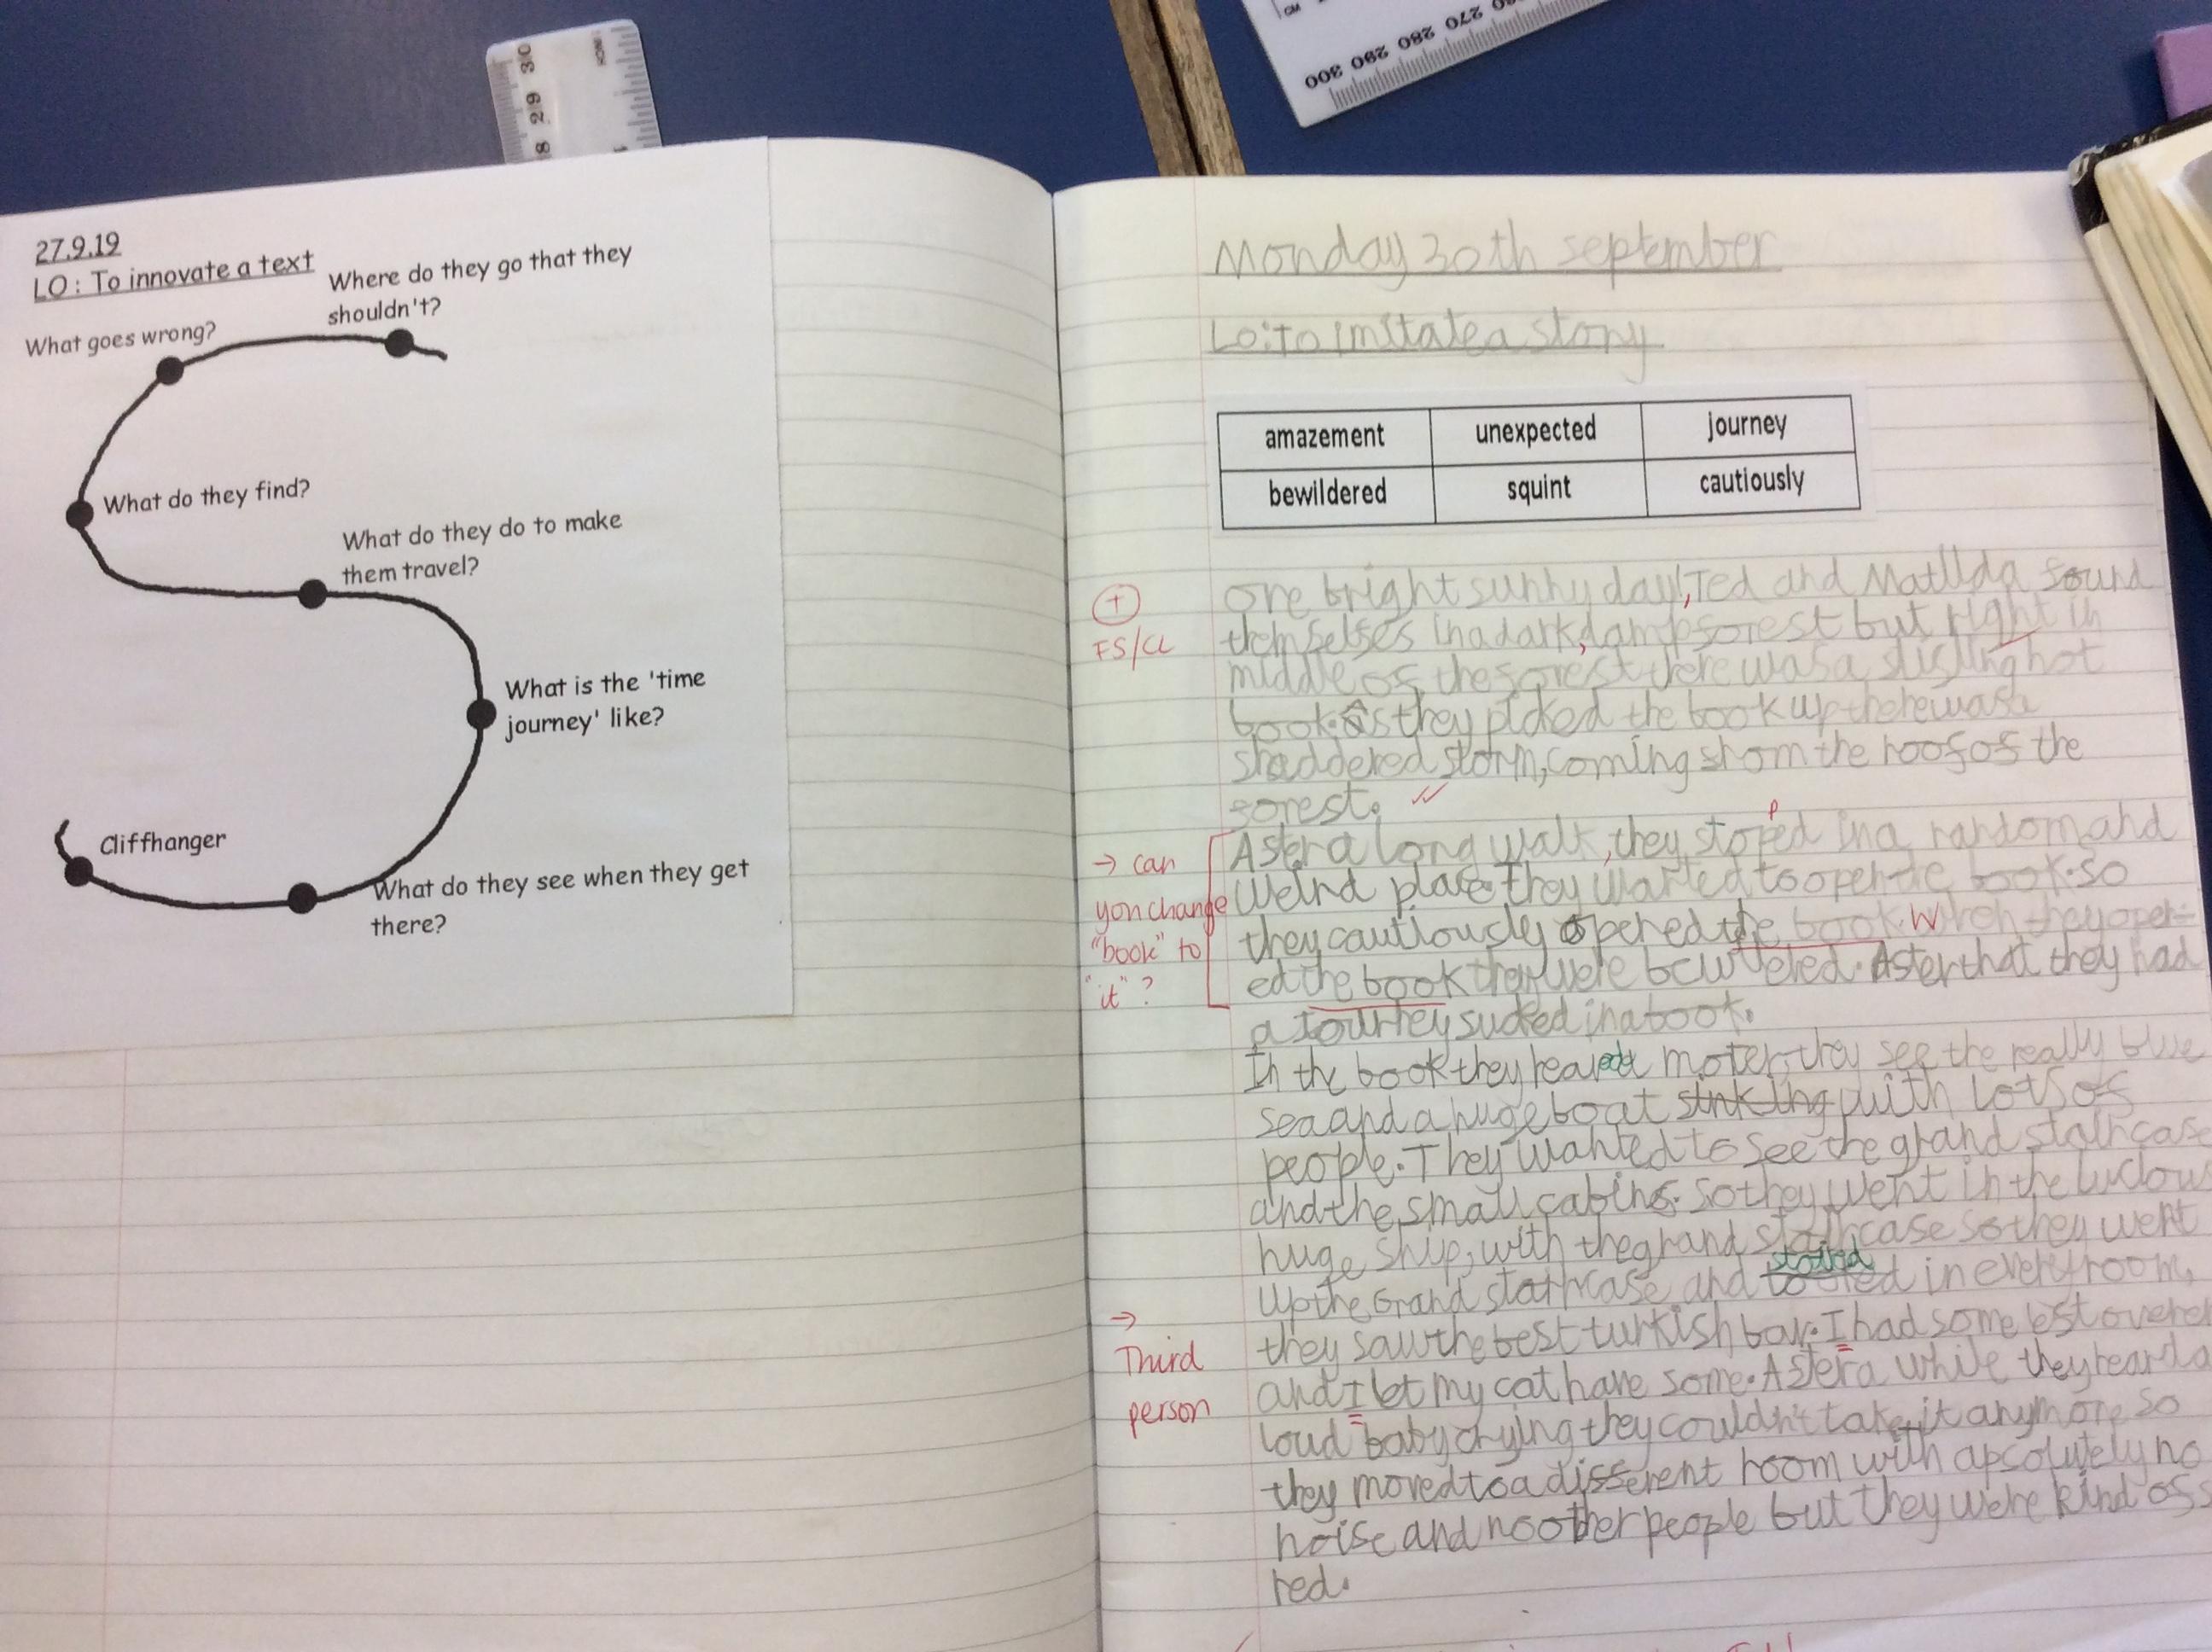 27.9.19
LO : To innovate a text
Where do they go that they
shouldn't?
What goes wrong?
What do they find?
What do they do to make
them travel?
What is the 'time
journey' like?
Cliffhanger
What do they see when they get
there?
Monday 30th september
Lo: to imitate a story
amazement unexpected journey
bewildered squint cautiously
+
FS/CL
one bright sunny day, Ted and Matilda found
themselfes in a dark, damp forest but right in
middle of the forest there was a hot
book. As they picked the book up there was a
shaddered storm, coming from the roof of the
forest.
After a long walk, they stopped in a random and
Weird place they wanted to open the book. So
they cautiously opened the book. When they open-
ed the book they were bewildered. After that they had
a Journey sucked in a book.
→ can
you change
"book" to
"it"?
In the book they heared moter, they see the really blue
sea and a huge boat sinking with Lots of
people. They wanted to see the grand staircase
and the small cabins. So they went in the
huge ship, with the grand staircase so they went
Up the Grand staircase and in every room,
they saw the best turkish bar. I had some
and I let my cat have some. After a while they heard a
loud baby crying they couldn't take it anymore so
they moved to a different room with apsolutely no
noise and no other people but they were kind of s
red.
→
Third
person
300 290 280 270
30 29